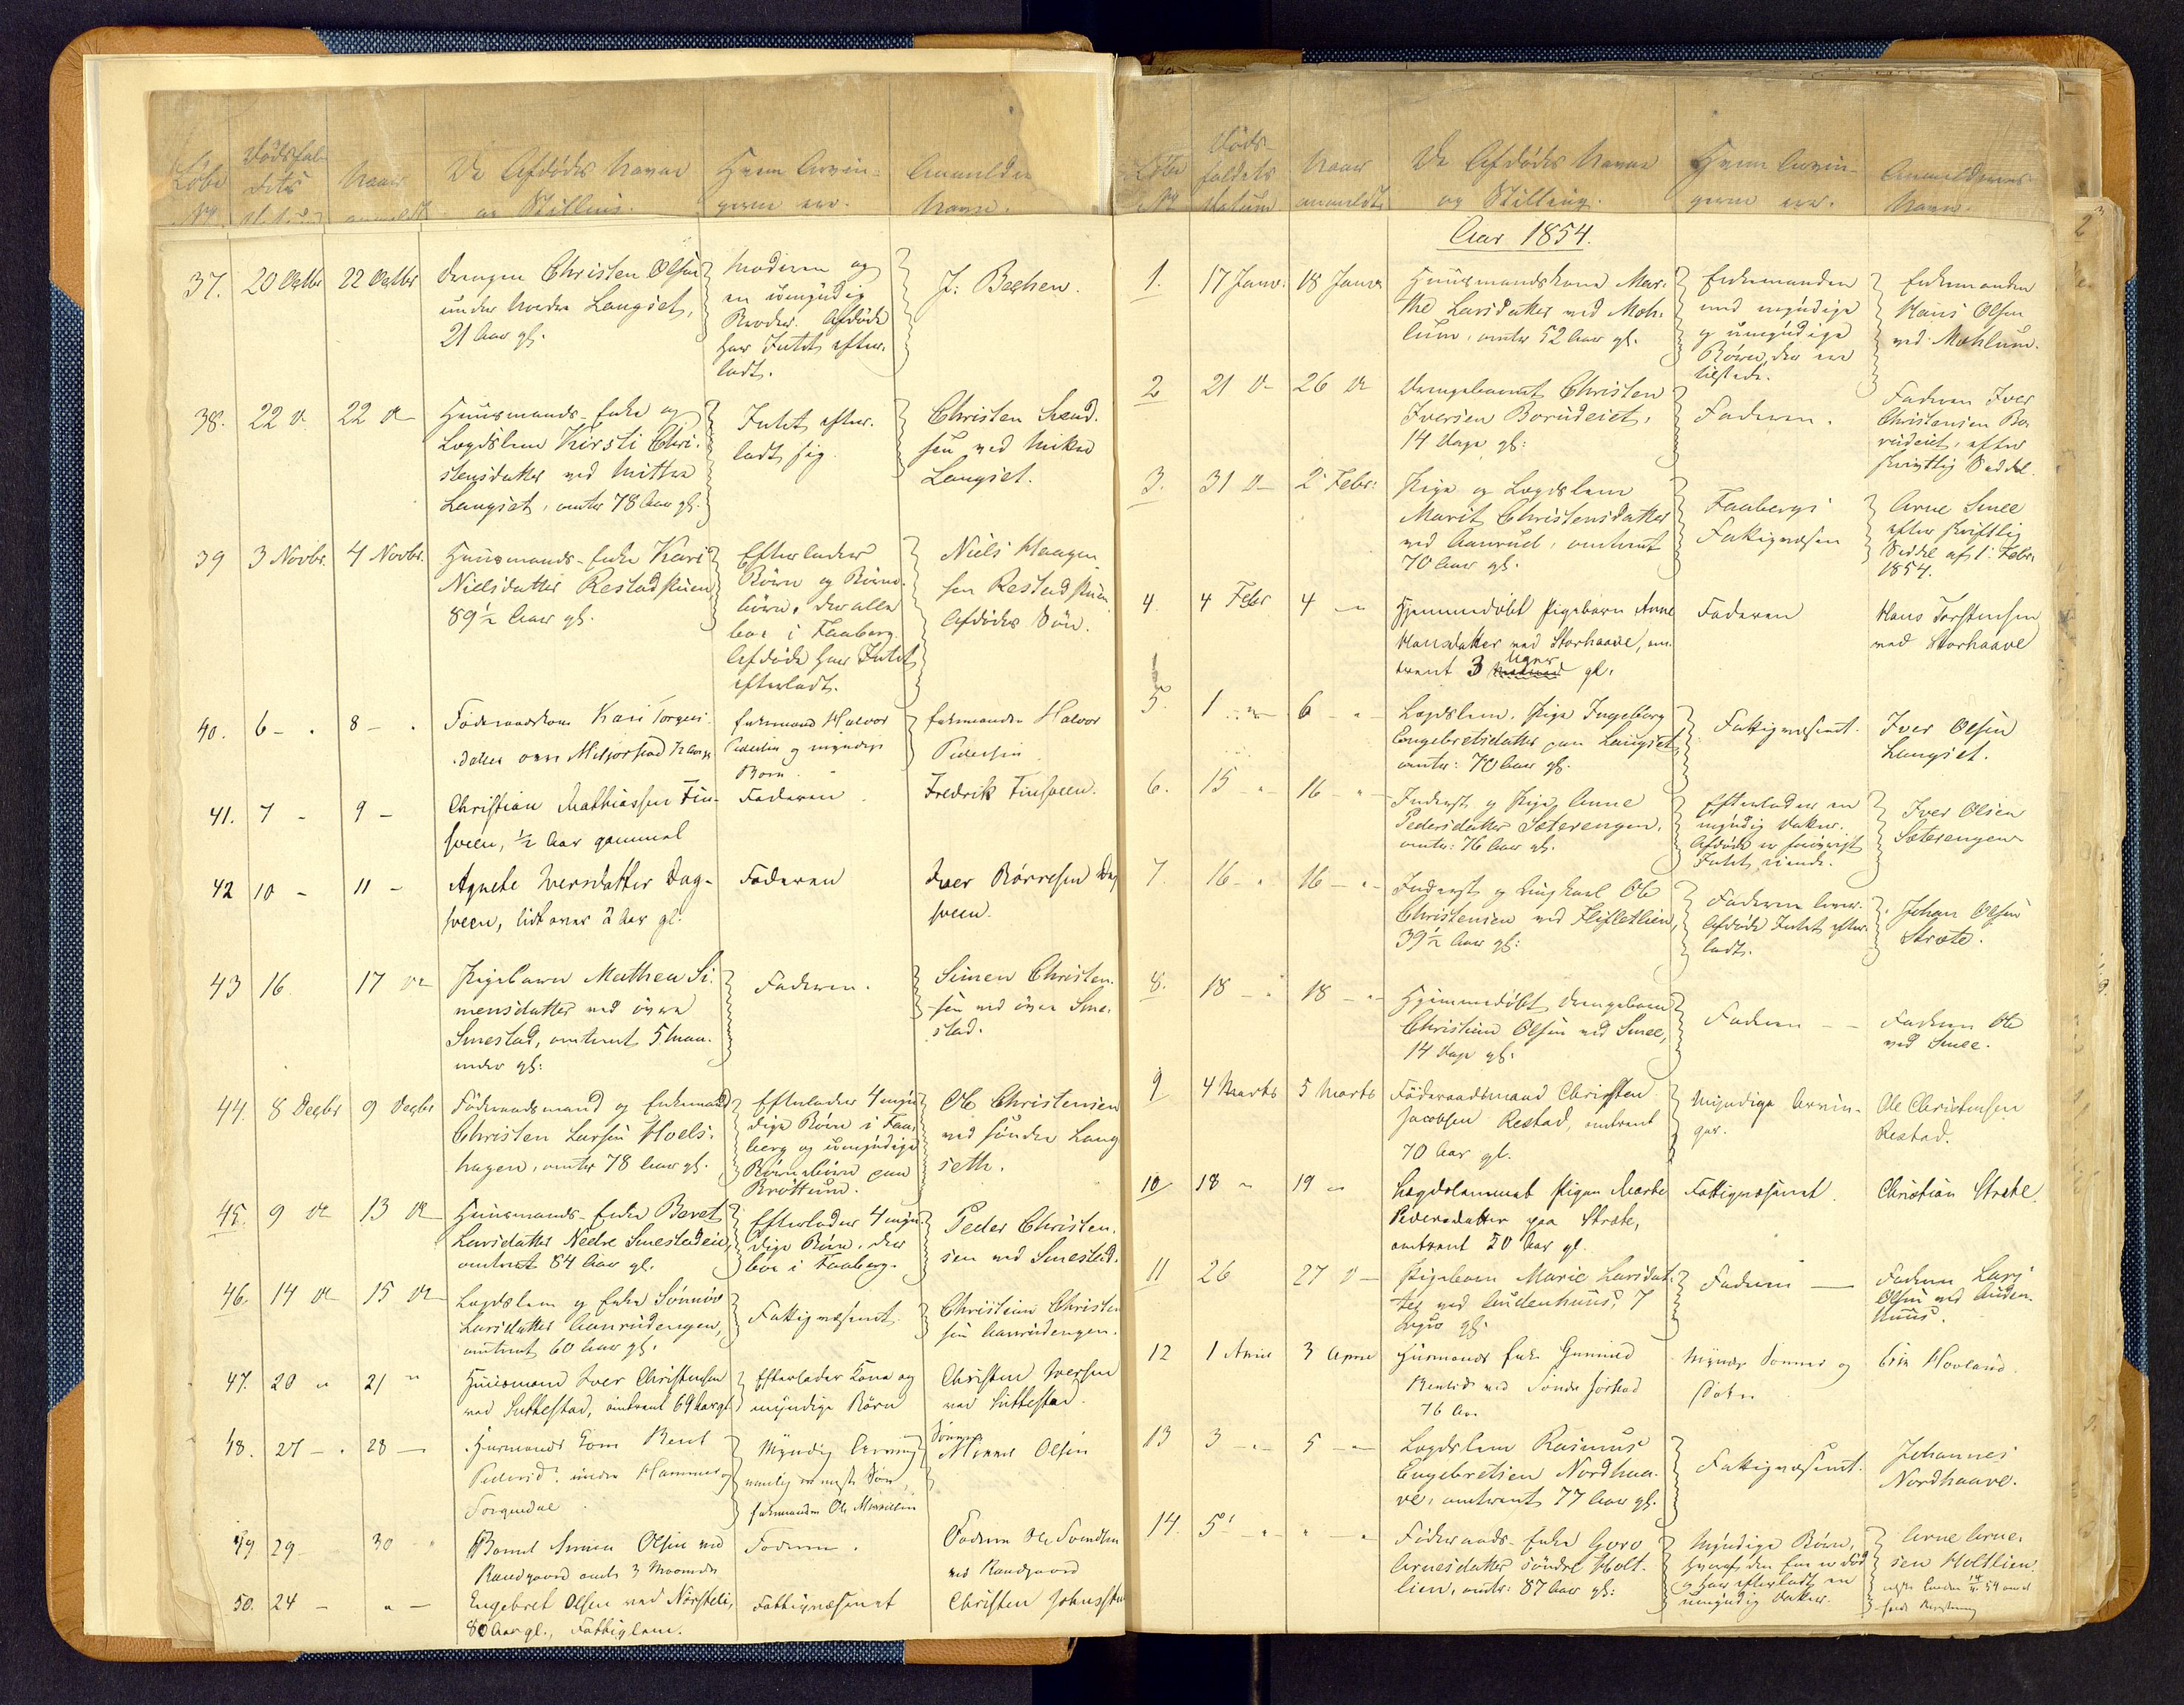 Løbe No
Dødsfaldets Datum
Naar anmeldt
De Afdødes Navne og Stilling.
Hvem Arvingerne ere.
Anmelderens Navn.
37. 20 Octbr 22 Octbr
Drengen Christen Olsen
under Nordre Langset,
21 Aar gl.
Moderen og
en umyndig
Broder. Afdøde
har Intet efter-
ladt.
J. Bechen.
38. 22 d 22 d
Huusmands-Enke og
Lægdslem Kirsti Chri-
stensdatter ved Mittre
Langset, omtr 78 Aar gl.
Intet efter-
ladt sig.
Christen Svend-
sen ved
Langset.
39 3 Novbr. 4 Novbr.
Huusmands-Enke Kari
Nielsdatter Restadstuen
89½ Aar gl.
Efterlader
Børn og Børne-
børn, der alle
boe i Faaberg.
Afdøde har Intet
efterladt.
Niels Haagen-
sen Restadstuen
Afdødes Søn.
40. 6 - 8 -
Føderaadskone Kari Torgers-
datter
Enkemand Halvor
Pedersen og myndige
Børn
Enkemanden Halvor
Pedersen
41. 7 - 9 -
Christian Mathiassen Fin-
sveen, ½ Aar gammel
Faderen
Fredrik Finsveen.
42 10 - 11 -
Agnete Iversdatter Dag-
sveen, lidt over 2 Aar gl.
Faderen
Iver Børresen Dag
sveen.
43 16 17 d
Pigebarn Mathea Si-
mensdatter ved øvre
Smestad, omtrent 5 Maa-
neder gl.
Faderen.
Simen Christen-
sen ved øvre Sme-
stad.
44. 8 Decbr 9 Decbr
Føderaadsmand og Enkemand
Christen Larsen Hoels-
hagen, omtr 78 Aar gl.
Efterlader 4 myn-
dige Børn i Faa-
berg og umyndige
Børnebørn paa
Brøttum.
Ole Christensen
ved søndre Lang
seth.
45. 9 d 13 d
Huusmands-Enke Beret
Larsdatter Nedre Smestadeie,
omtrent 84 Aar gl.
Efterlader 4 myn-
dige Børn, der
boe i Faaberg.
Peder Christen-
sen ved Smestad.
46. 14 d 15 d
Lægdslem og Enke Sønnøv
Larsdatter Aanrudengen,
omtrent 60 Aar gl.
Fattigvæsenet
Christian Christen
sen Aanrudengen.
47. 20 " 21 "
Huusmand Iver Christensen
ved Suttestad, omtrent 69 Aar gl
Efterlader Kone og
myndige Børn
Christen Iversen
ved Suttestad.
48. 27 - 28 -
Huusmands Kone Beret
Pedersd. under Hammer
Myndig Arving
nemlig
Enkemanden Ole
Sønnen
Olsen
49 29 - 30
Barnet Simen Olsen ved
Randgaard omtr 3 Maaneder
Faderen.
Faderen Ole Svendsen
ved Randgaard
50. 24 - " -
Engebret Olsen ved Nørsteli,
80 Aar gl., Fattiglem.
Fattigvæsenet
Christen Johnssten
Løbe No
Døds-
faldets
Datum
Naar
anmeldt
De Afdødes Navne
og Stilling.
Hvem Arvin-
gerne ere.
Anmelderens
Navn.
Aar 1854.
1. 17 Janv. 18 Janv.
Huusmandskone Mar-
the Larsdatter ved Moh-
lum, omtr 52 Aar gl.
Enkemanden
med myndige
og umyndige
Børn, der ere
tilstede.
Enkemanden
Hans Olsen
ved Mohlum.
2 21 d 26 d
Drengebarnet Christen
Iversen Borudeiet,
14 Dage gl.
Faderen.
Faderen Iver
Christensen Bo-
rudeiet, efter
skriftlig Seddel.
3. 31 d 2 Febr.
Pige og Lægdslem
Marit Christensdatter
ved Aanrud, omtrent
70 Aar gl.
Faabergs
Fattigvæsen
Arne Smee
efter skriftlig
Seddel af 1 Febr.
1854.
4. 4 Febr 4 -
Hjemmedøbt Pigebarn Anne
Hansdatter ved Storhaave, om-
trent 3 Uger gl.
Faderen
Hans Torstensen
ved Storhaave
5. 1 6 -
Lægdslem, Pige Ingeborg
Engebretsdatter paa Langset
omtr: 70 Aar gl.
Fattigvæsenet.
Iver Olsen
Langset.
6. 15 - 16 -
Inderst og Pige Anne
Pedersdatter Sæterengen,
omtr: 76 Aar gl.
Efterlader en
myndig Datter.
Afdøde er forøvrigt
Intet eiende.
Iver Olsen
Sæterengen
7. 16 - 16 -
Inderst og Ungkarl Ole
Christensen ved Flisletlien,
39½ Aar gl:
Faderen Arne.
Afdøde Intet efter-
ladt.
Johan Olsen
Stræte.
8. 18 - 18 -
Hjemmedøbt Drengebarn
Christian Olsen ved Smee,
14 Dage gl:
Faderen -
Faderen Ole
ved Smee.
9 4 Marts 5 Marts
Føderaadsmand Christen
Jacobsen Restad, omtrent
70 Aar gl.
Myndige Arvin-
ger.
Ole Christensen
Restad.
10 18 - 19 -
Lægdslemmet Pigen Marte
Pedersdatter paa Stræte,
omtrent 50 Aar gl.
Fattigvæsenet.
Christian Stræte.
11 26 27 d -
Pigebarn Marie Larsdat-
ter ved Audenhuus, 7
Uger gl:
Faderen -
Faderen Lars
Olsen ved Auden-
huus.
12 1 April 3 April
Huusmands Enke
ved Søndre Jørstad
76 Aar
Myndige Sønner og
Døtre
Hovland.
13 3 - 5 -
Lægdslem Rasmus
Engebretsen Nordhaa-
ve, omtrent 77 Aar gl.
Fattigvæsenet.
Johannes
Nordhaave.
14. 5 - " -
Føderaads-Enke Goro
Arnesdatter søndre Holt-
lien, omtr: 87 Aar gl:
Myndige Børn,
hvoraf den Ene er død
og har efterladt en
umyndig Datter.
Arne Arne-
sen Holtlien.